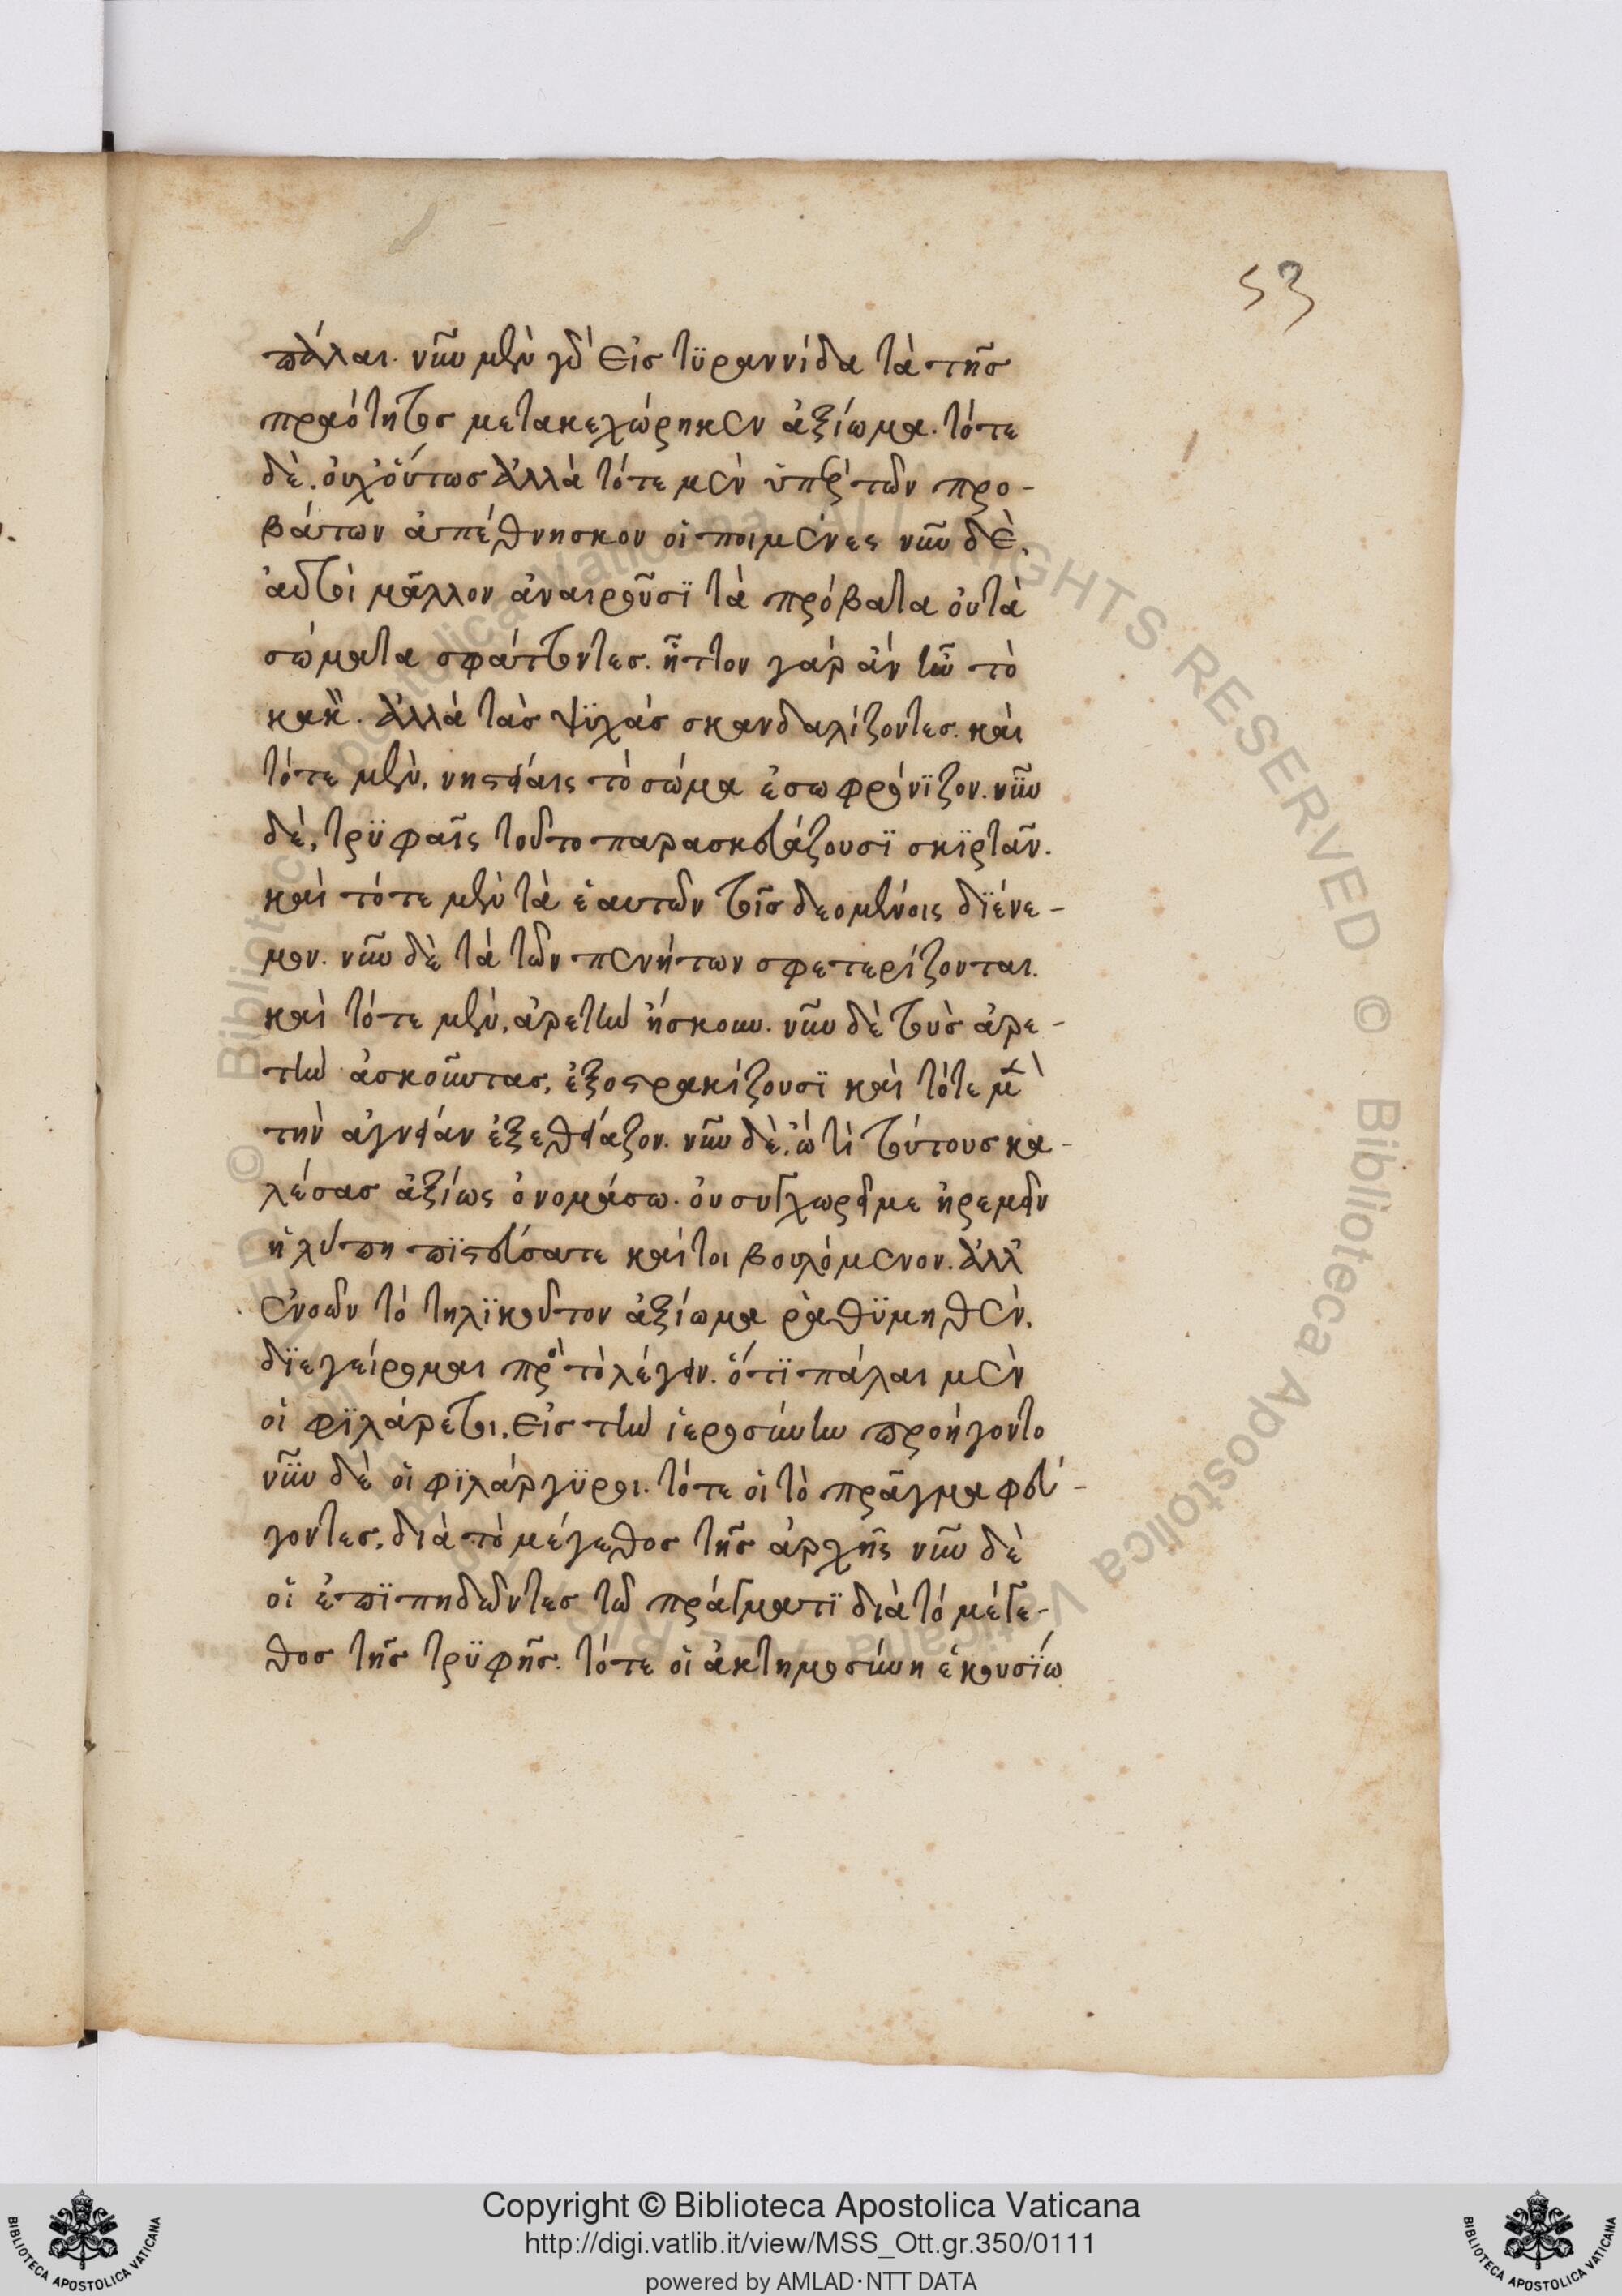 53
πάλαι. νῦν μὲν γὰρ εἰς τϋραννίδα τὰ τῆς
πραότητος μετακεχώρηκεν ἀξίωμα. τότε
δὲ. οὐχ' οὕτως ἀλλὰ τότε μὲν ὑπὲρ τῶν προ-
βάτων ἀπέθνησκον οἱ ποιμένες νῦν δὲ.
αὐτοὶ μᾶλλον ἀναιροῦσϊ τὰ πρόβατα οὐ τὰ
σώματα σφάττοντες. ἧττον γὰρ ἀν ἦν τὸ
κακὸν. ἀλλὰ τὰς ψϋχάς σκανδαλίζοντες. καὶ
τότε μὲν, νηστείαις τὸ σώμα ἐσωφρόνϊζον. νῦν
δὲ, τρϋφαῖς τοῦτο παρασκευάζουσϊ σκϊρτᾶν.
καὶ τότε μὲν τὰ ἑαυτῶν τοῖς δεομένοις δϊένε-
μον. νῦν δὲ τὰ τῶν πενήτων σφετερίζονται.
καὶ τότε μὲν, ἀρετὴν ἤσκουν. νῦν δὲ τοὺς ἀρε-
τὴν ἀσκοῦντας, ἐξοστρακίζουσϊ καὶ τότε μὲν
τὴν ἁγνείαν ἐξεθείαζον. νῦν δὲ, ὢ τὶ τούτους κα-
λέσας ἀξίως ὀνομάσω. οὐ συγχωρεῖ με ἠρεμεῖν
ἡ λύπη πϊστεύσατε καίτοι βουλόμενον. ἀλλ'
ἐννοῶν τὸ τηλϊκοῦτον ἀξίωμα ῥαθϋμηθὲν,
δϊεγείρομαι πρὸς τὸ λέγειν. ὅτϊ πάλαι μὲν
οἱ φϊλάρετοι, εἰς τὴν ἱεροσύνην προήγοντο
νῦν δὲ οἱ φϊλάργϋροι. τότε οἱ τὸ πρᾶγμα φεύ-
γοντες, διὰ τὸ μέγεθος τῆς ἀρχῆς νῦν δὲ
οἱ ἐπϊπηδῶντες τῶ πράγματϊ διὰ τὸ μέγε-
θος τῆς τρϋφῆς. τότε οἱ ἀκτημοσύνη ἑκουσίω
Copyright © Biblioteca Apostolica Vaticana
http://digi.vatlib.it/view/MSS_Ott.gr.350/0111
powered by AMLAD·NTT DATA